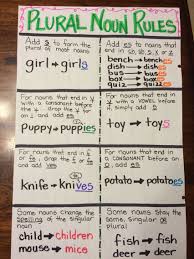 PLURAL NOUN RULES
Add s to form the
plural of most nouns
girl → girls
Add es to nouns that
end in
bench → benches
dish → dishes
bus → buses
box → boxes
quiz → quizzes
For nouns that end in y
with a consonant before
the y and
Puppy → puppies
For nouns that end in
y with a vowel before
simply add s
toy → toys
For nouns that end in
f or fe, drop the f or
fe and add ves
Knife → knives
For nouns that end in
with a consonant before
add es
potato → potatoes
Some nouns change the
spelling of the singular
noun
child → children
mouse → mice
Some nouns stay the
same, singular or
plural
fish → fish
deer → deer